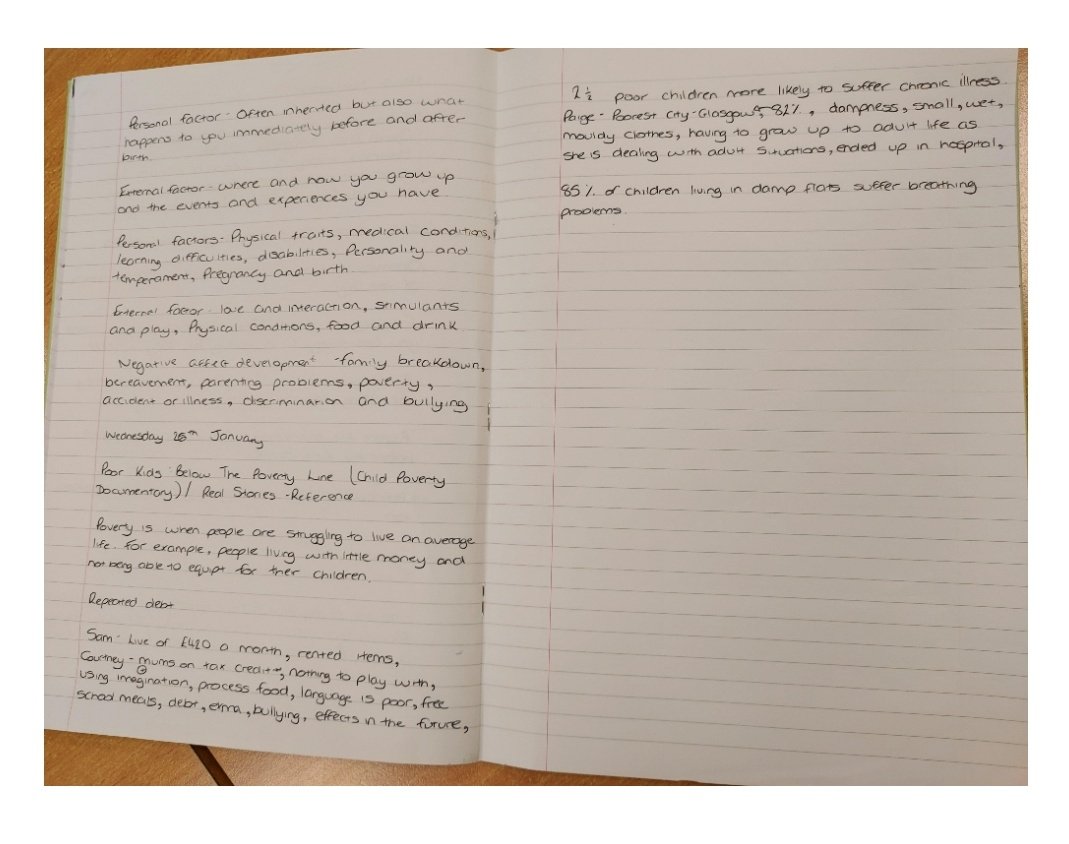 Personal factor - Often inherited but also what
happens to you immediately before and after
birth.
External factor - where and how you grow up
and the events and experiences you have
Personal factors - Physical traits, medical conditions,
learning difficulties, disabilities, Personality and
temperament, Pregnancy and birth
External factor - love and interaction, stimulants
and play, Physical conditions, food and drink
Negative affect development - family breakdown,
bereavement, parenting problems, poverty,
accident or illness, discrimination and bullying
Wednesday January
Poor Kids : Below The Poverty Line (Child Poverty
Documentary) / Real Stories - Reference
Poverty is when people are struggling to live an average
life. For example, people living with little money and
not being able to equipt for their children.
Repeated debt
Sam - Live of £420 a month, rented items,
Courtney - mums on tax credit, nothing to play with,
using imagination, process food, language is poor, free
school meals, debt, bullying, effects in the future,
2 ½ poor children more likely to suffer chronic illness.
Paige - Poorest city - Glasgow, 82%, dampness, small, wet,
mouldy clothes, having to grow up to adult life as
she is dealing with adult situations, ended up in hospital,
85% of children living in damp flats suffer breathing
problems.